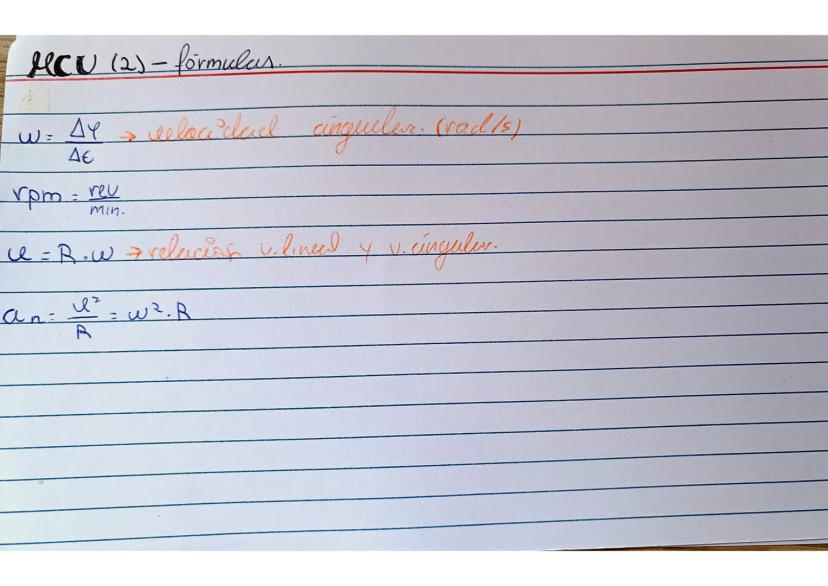 MCU (2) – fórmulas.
ω = Δφ/Δt → velocidad angular. (rad/s)
rpm = rev/min.
v = R.ω → relación v.lineal y v.angular.
an = v²/R = ω².R